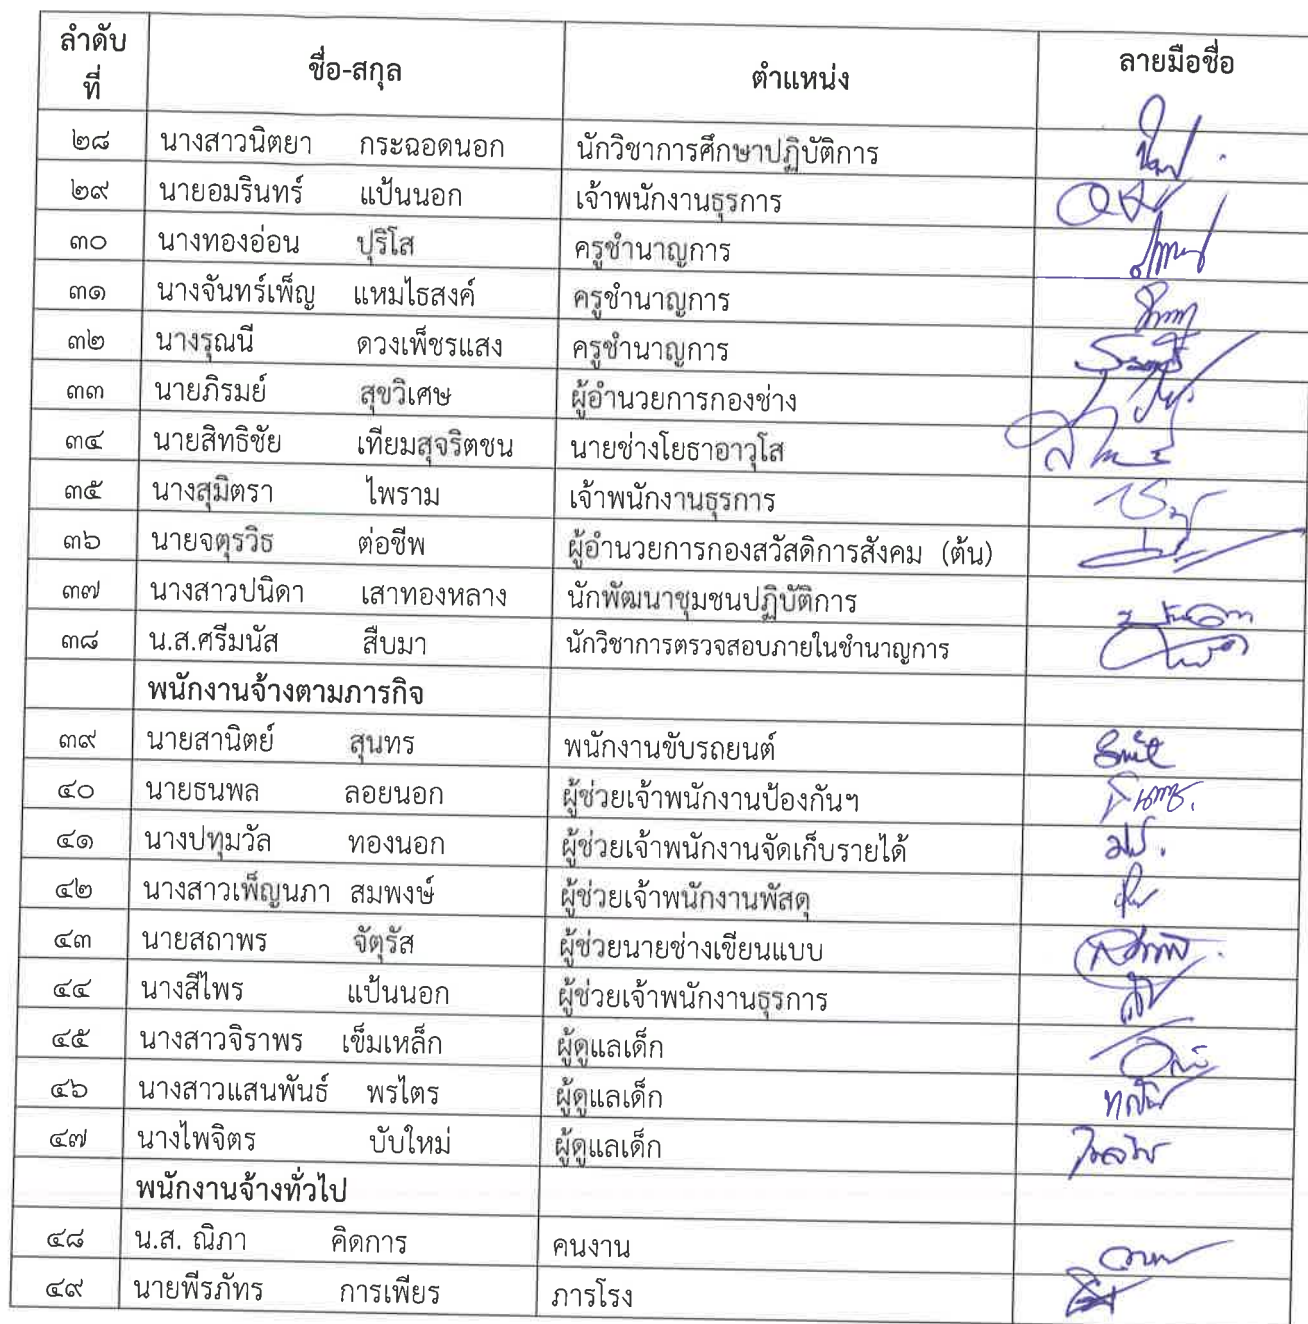 ลำดับที่ ชื่อ-สกุล ตำแหน่ง ลายมือชื่อ
๒๘ นางสาวนิตยา กระฉอดนอก นักวิชาการศึกษาปฏิบัติการ
๒๙ นายอมรินทร์ แป้นนอก เจ้าพนักงานธุรการ
๓๐ นางทองอ่อน ปุริโส ครูชำนาญการ
๓๑ นางจันทร์เพ็ญ แหมไธสงค์ ครูชำนาญการ
๓๒ นางรุณนี ดวงเพ็ชรแสง ครูชำนาญการ
๓๓ นายภิรมย์ สุขวิเศษ ผู้อำนวยการกองช่าง
๓๔ นายสิทธิชัย เทียมสุจริตชน นายช่างโยธาอาวุโส
๓๕ นางสุมิตรา ไพราม เจ้าพนักงานธุรการ
๓๖ นายจตุรวิธ ต่อชีพ ผู้อำนวยการกองสวัสดิการสังคม (ต้น)
๓๗ นางสาวปนิดา เสาทองหลาง นักพัฒนาชุมชนปฏิบัติการ
๓๘ น.ส.ศรีมนัส สืบมา นักวิชาการตรวจสอบภายในชำนาญการ
พนักงานจ้างตามภารกิจ
๓๙ นายสานิตย์ สุนทร พนักงานขับรถยนต์
๔๐ นายธนพล ลอยนอก ผู้ช่วยเจ้าพนักงานป้องกันฯ
๔๑ นางปทุมวัล ทองนอก ผู้ช่วยเจ้าพนักงานจัดเก็บรายได้
๔๒ นางสาวเพ็ญนภา สมพงษ์ ผู้ช่วยเจ้าพนักงานพัสดุ
๔๓ นายสถาพร จัตุรัส ผู้ช่วยนายช่างเขียนแบบ
๔๔ นางสีไพร แป้นนอก ผู้ช่วยเจ้าพนักงานธุรการ
๔๕ นางสาวจิราพร เข็มเหล็ก ผู้ดูแลเด็ก
๔๖ นางสาวแสนพันธ์ พรไตร ผู้ดูแลเด็ก
๔๗ นางไพจิตร บับใหม่ ผู้ดูแลเด็ก
พนักงานจ้างทั่วไป
๔๘ น.ส. ณิภา คิดการ คนงาน
๔๙ นายพีรภัทร การเพียร ภารโรง